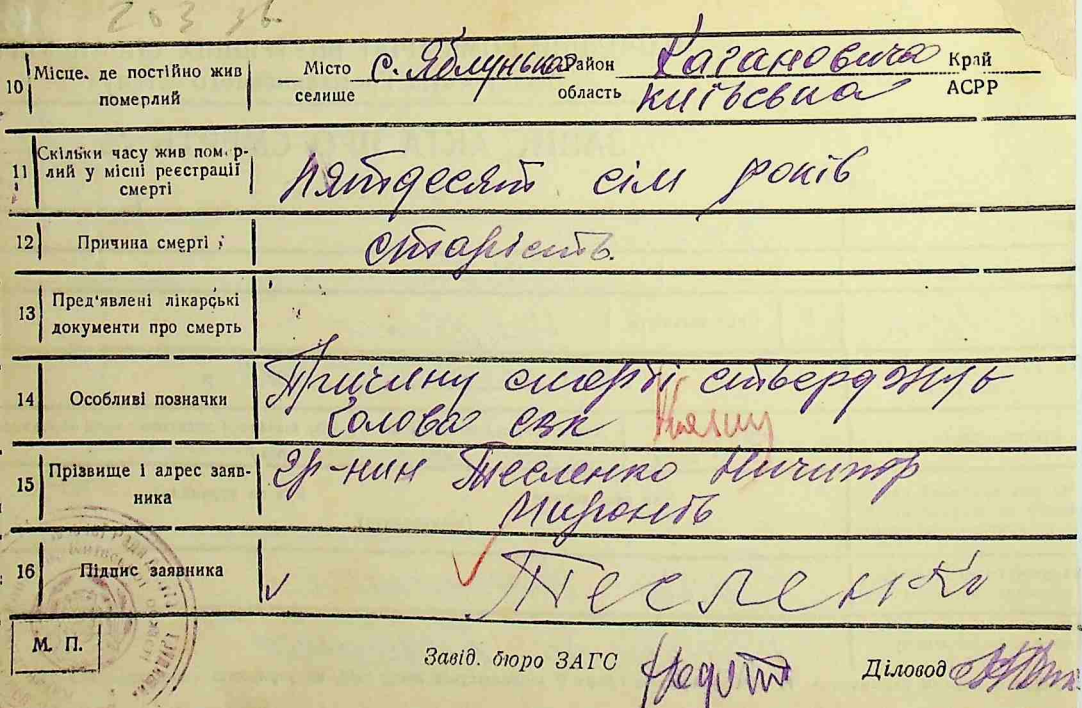 203 зв.
10 Місце, де постійно жив Місто с. Яблунька Район Кагановича Край
померлий селище область київська АСРР
11 Скільки часу жив помер-
лий у місці реєстрації
смерті пятдесят сім років
12 Причина смерті старість.
13 Пред'явлені лікарські
документи про смерть
14 Особливі позначки Причину смерті стверджує
Голова СВК
15 Прізвище і адрес заяв- гр-нин Тесленко Ничипор
ника Миронів
16 Підпис заявника Тесленко
М. П. Завід. бюро ЗАГС Діловод